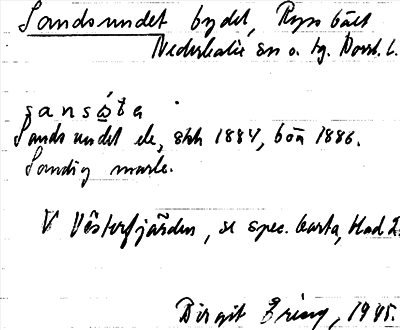 Landsundet bydel, Ryss bäck
Nederkalix sn o. tg. Norrb. l.
sansǫ́ta
Sandsundet ek, skh 1884, bön 1886.
Sandig mark.
V Västerfjärden, se spec. karta, blad 2.
Birgit Ering, 1945.